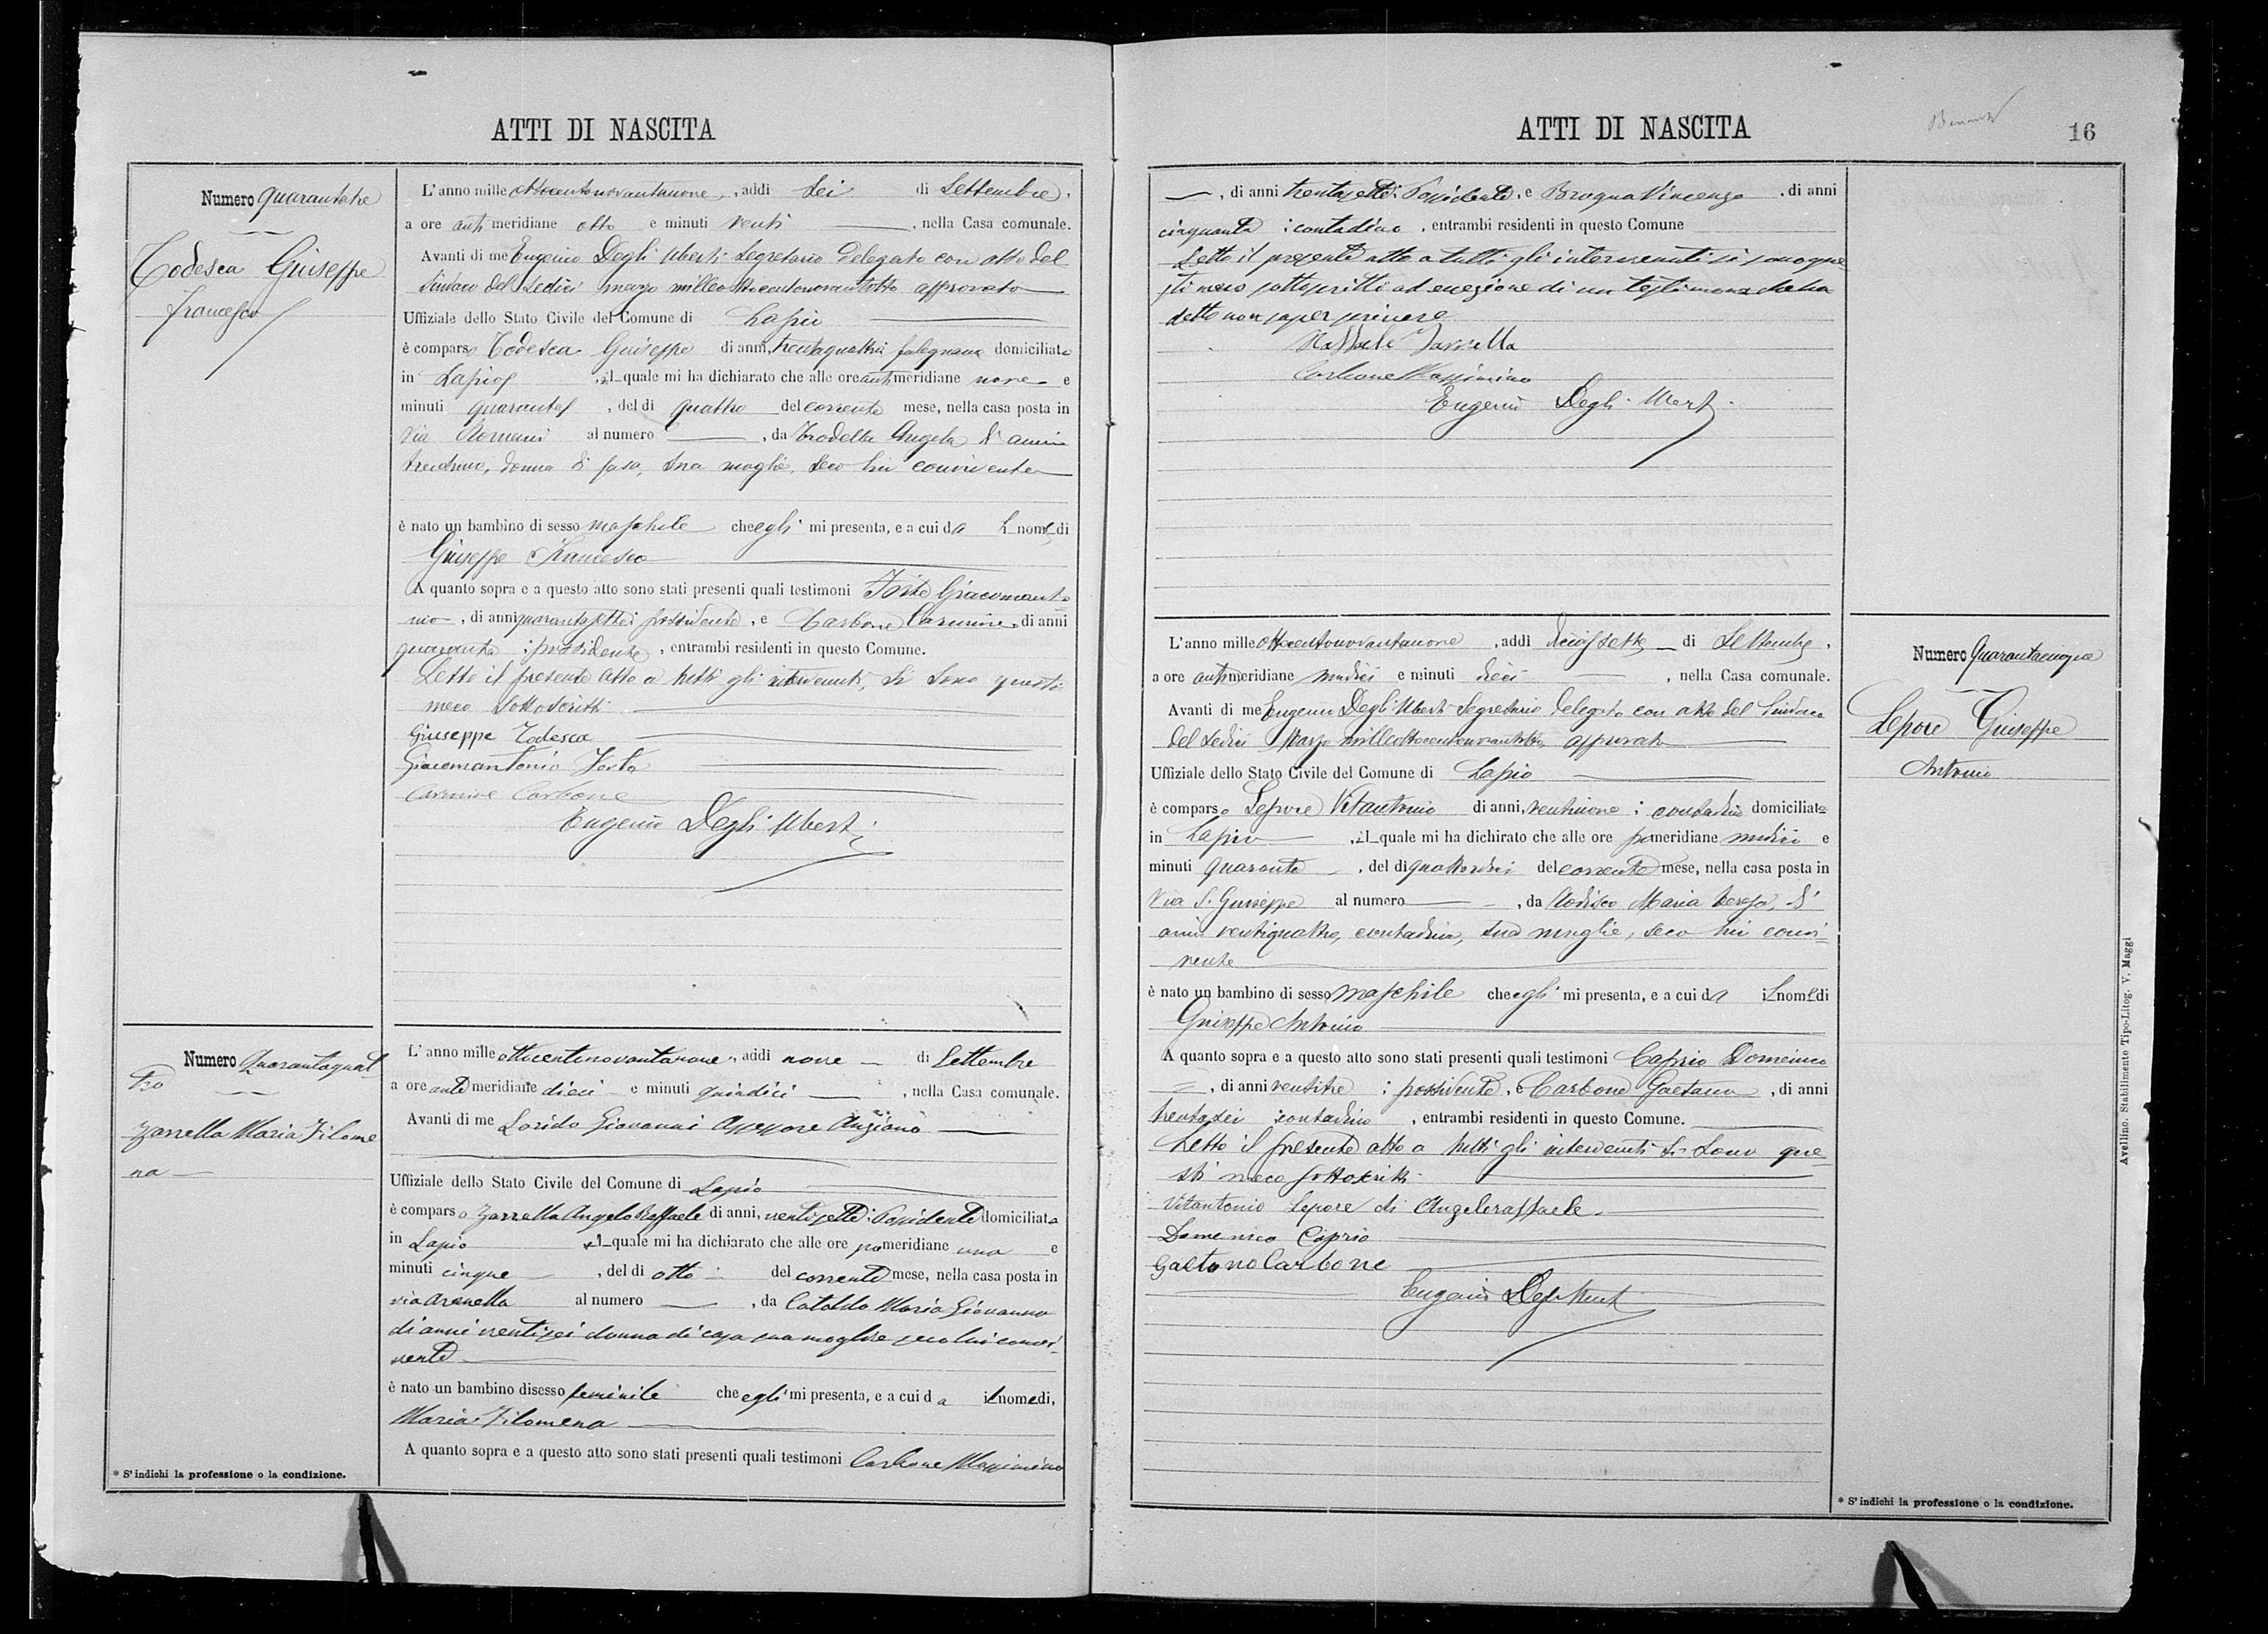 ATTI DI NASCITA
Numero quarantatre
Todesca Giuseppe
Francesco
L'anno mille ottocentonovantanove, addì sei di Settembre,
a ore anti meridiane otto e minuti venti, nella Casa comunale.
Avanti di me Eugenio Degli Uberti Segretario delegato con atto del
Sindaco del sedici marzo milleottocentonovantotto approvato
Uffiziale dello Stato Civile del Comune di Lapio
è comparso Todesca Giuseppe di anni, trentaquattro falegname domiciliato
in Lapio, il quale mi ha dichiarato che alle ore antimeridiane nove e
minuti quaranta, del dì quattro del corrente mese, nella casa posta in
Via Romani al numero, da Trodella Angela di anni
trentuno, donna di casa, sua moglie, seco lui convivente
è nato un bambino di sesso maschile che egli mi presenta, e a cui da il nome di
Giuseppe Francesco
A quanto sopra e a questo atto sono stati presenti quali testimoni Forte Giacomanto=
nio, di anni quarantasette possidente, e Carbone Carmine, di anni
quaranta possidente, entrambi residenti in questo Comune.
Letto il presente atto a tutti gli intervenuti, si sono questi
meco sottoscritti
Giuseppe Todesca
Giacomantonio Forte
Carmine Carbone
Eugenio Degli Uberti
Numero Quarantaquat=
tro
Zarrella Maria Filome
na
L'anno mille ottocentonovantanove, addì nove di Settembre
a ore ante meridiane dieci e minuti quindici, nella Casa comunale.
Avanti di me Lorido Giovanni Assessore Anziano
Uffiziale dello Stato Civile del Comune di Lapio
è comparso Zarrella Angelo Raffaele di anni, ventisette; Possidente domiciliato
in Lapio il quale mi ha dichiarato che alle ore pomeridiane una e
minuti cinque, del dì otto del corrente mese, nella casa posta in
via Arenella al numero, da Cataldo Maria Giovanna
di anni ventisei donna di casa sua moglie seco lui convi=
vente
è nato un bambino di sesso feminile che egli mi presenta, e a cui da il nome di,
Maria Filomena
A quanto sopra e a questo atto sono stati presenti quali testimoni Carbone Massimino
* S'indichi la professione o la condizione.
ATTI DI NASCITA
16
, di anni trentasette; Possidente, e Brogna Vincenzo, di anni
cinquanta; contadino, entrambi residenti in questo Comune
Letto il presente atto a tutti gli intervenuti si sono que
sti meco sottoscritti ad eccezione di un testimone che ha
detto non saper scrivere
Raffaele Zarrella
Carbone Massimino
Eugenio Degli Uberti
Numero Quarantacinque
Lepore Giuseppe
Antonio
L'anno mille ottocentonovantanove, addì diciassette di Settembre,
a ore antimeridiane undici e minuti dieci, nella Casa comunale.
Avanti di me Eugenio Degli Uberti Segretario delegato con atto del Sindaco
del sedici Marzo milleottocentonovantotto approvato
Uffiziale dello Stato Civile del Comune di Lapio
è comparso Lepore Vitantonio di anni, ventinove; contadino domiciliato
in Lapio, il quale mi ha dichirato che alle ore pomeridiane undici e
minuti quaranta, del dì quattordici del corrente mese, nella casa posta in
Via S. Giuseppe al numero, da Rodisco Maria Teresa, di
anni ventiquattro, contadina, sua moglie, seco lui convi=
vente
è nato un bambino di sesso maschile che egli mi presenta, e a cui da il nome di
Giuseppe Antonio
A quanto sopra e a questo atto sono stati presenti quali testimoni Caprio Domenico
=, di anni ventitre; possidente, e Carbone Gaetano, di anni
trentasei contadino, entrambi residenti in questo Comune.
Letto il presente atto a tutti gli intervenuti si sono que=
sti meco sottoscritti
Vitantonio Lepore di Angeloraffaele
Domenico Caprio
Gaetano Carbone
Eugenio Degli Uberti
* S'indichi la professione o la condizione.
Avellino. Stabilimento Tipo-Litog. V. Maggi